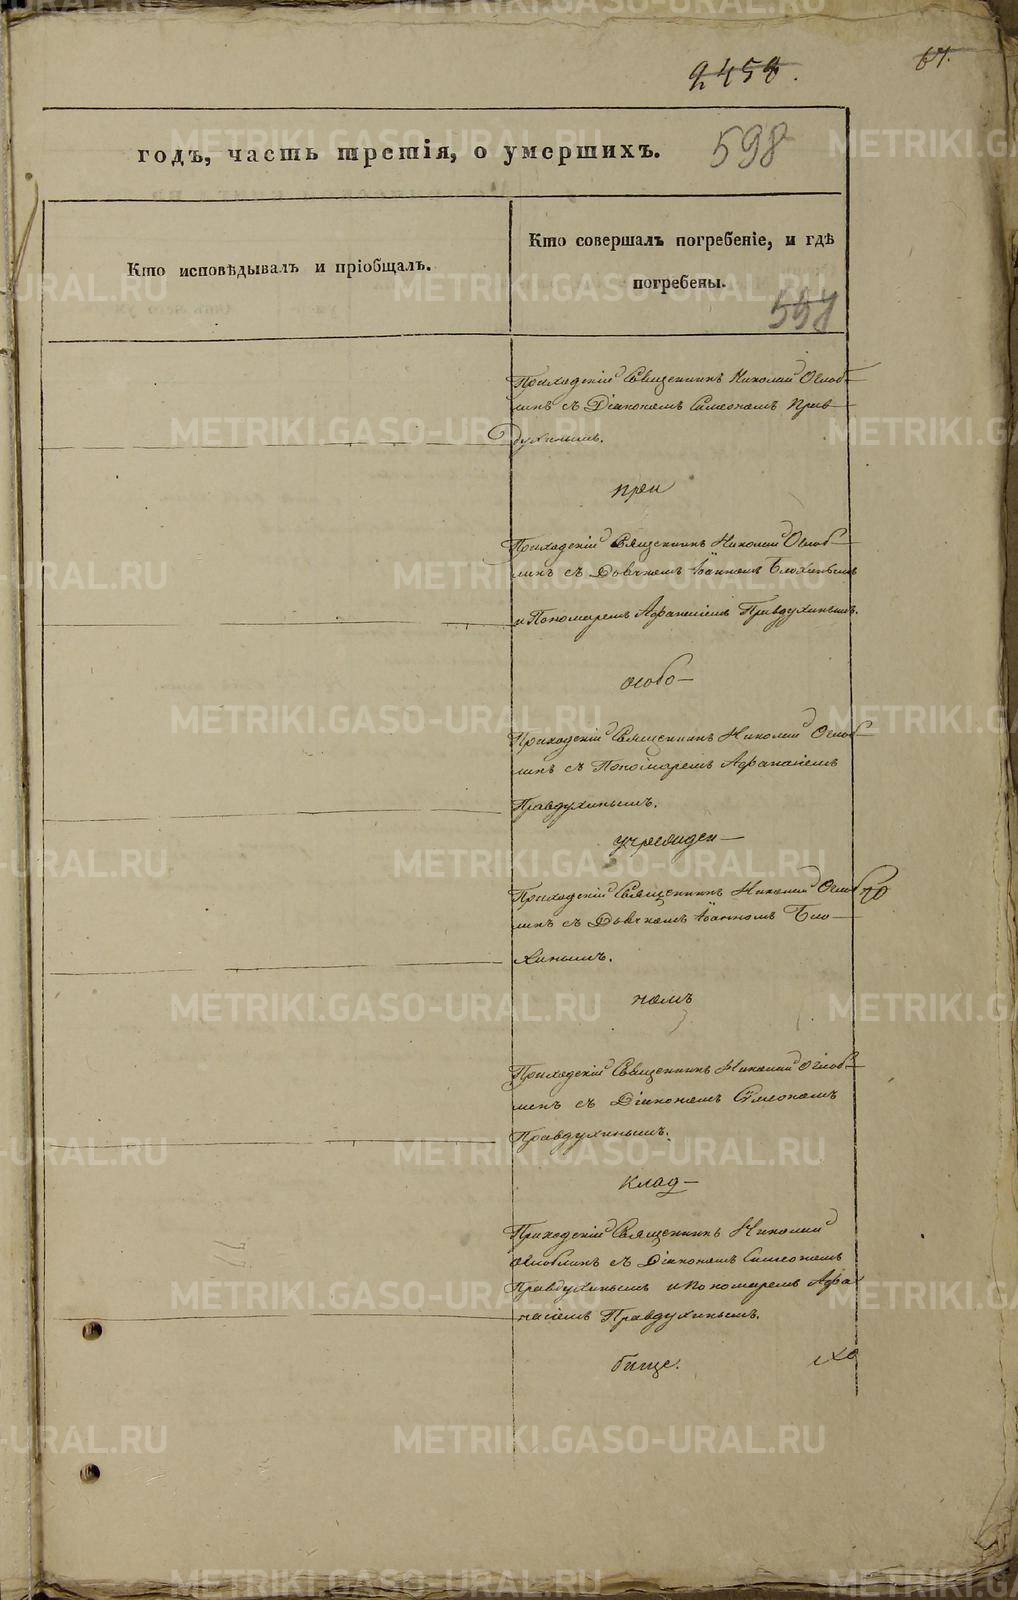 2458.
67.
годъ, часть третія, о умершихъ.
598
Кто исповѣдывалъ и пріобщалъ.
Кто совершалъ погребеніе, и гдѣ
погребены.
597
Приходскій Священникъ Николай Оглоб-
линъ съ Діакономъ Симеономъ Прав-
духинымъ.
при
Приходскій Священникъ Николай Оглоб-
линъ съ Дьячкомъ Іоанномъ Блохинымъ
и Пономаремъ Афанасіемъ Правдухинымъ.
особо-
Приходскій Священникъ Николай Оглоб-
линъ съ Пономаремъ Афанасіемъ
Правдухинымъ.
учрежден-
Приходскій Священникъ Николай Оглоб-
линъ съ Дьячкомъ Іоанномъ Бло-
хинымъ.
номъ
Приходскій Священникъ Николай Оглоб-
линъ съ Діакономъ Симеономъ
Правдухинымъ.
клад-
Приходскій Священникъ Николай
Оглоблинъ съ Діакономъ Симеономъ
Правдухинымъ и Пономаремъ Афа-
насіемъ Правдухинымъ.
бище.
METRIKI.GASO-URAL.RU